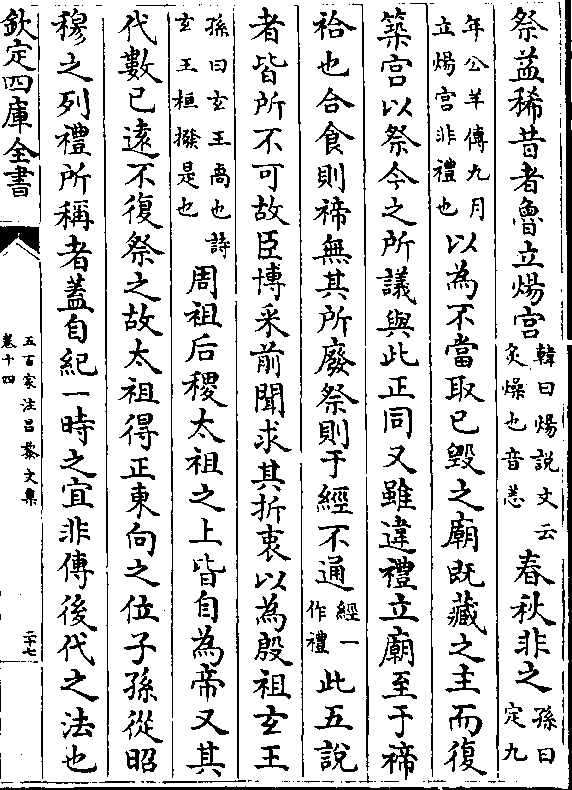 祭益稀昔者魯立煬宫韓曰煬説文云炙燥也音恙春秋非之孫曰定九
年公羊傳九月立煬宫非禮也以為不當取已毁之廟既藏之主而復
築宫以祭今之所議與此正同又雖違禮立廟至于禘
祫也合食則禘無其所廢祭則于經不通經一作禮此五説
者皆所不可故臣博采前聞求其折衷以為殷祖玄王
孫曰玄王禼也詩玄王桓撥是也周祖后稷太祖之上皆自為帝又其
代數已遠不復祭之故太祖得正東向之位子孫從昭
穆之列禮所稱者蓋自紀一時之宜非傳後代之法也
欽定四庫全書
五百家注昌黎文集
卷十四
二十七